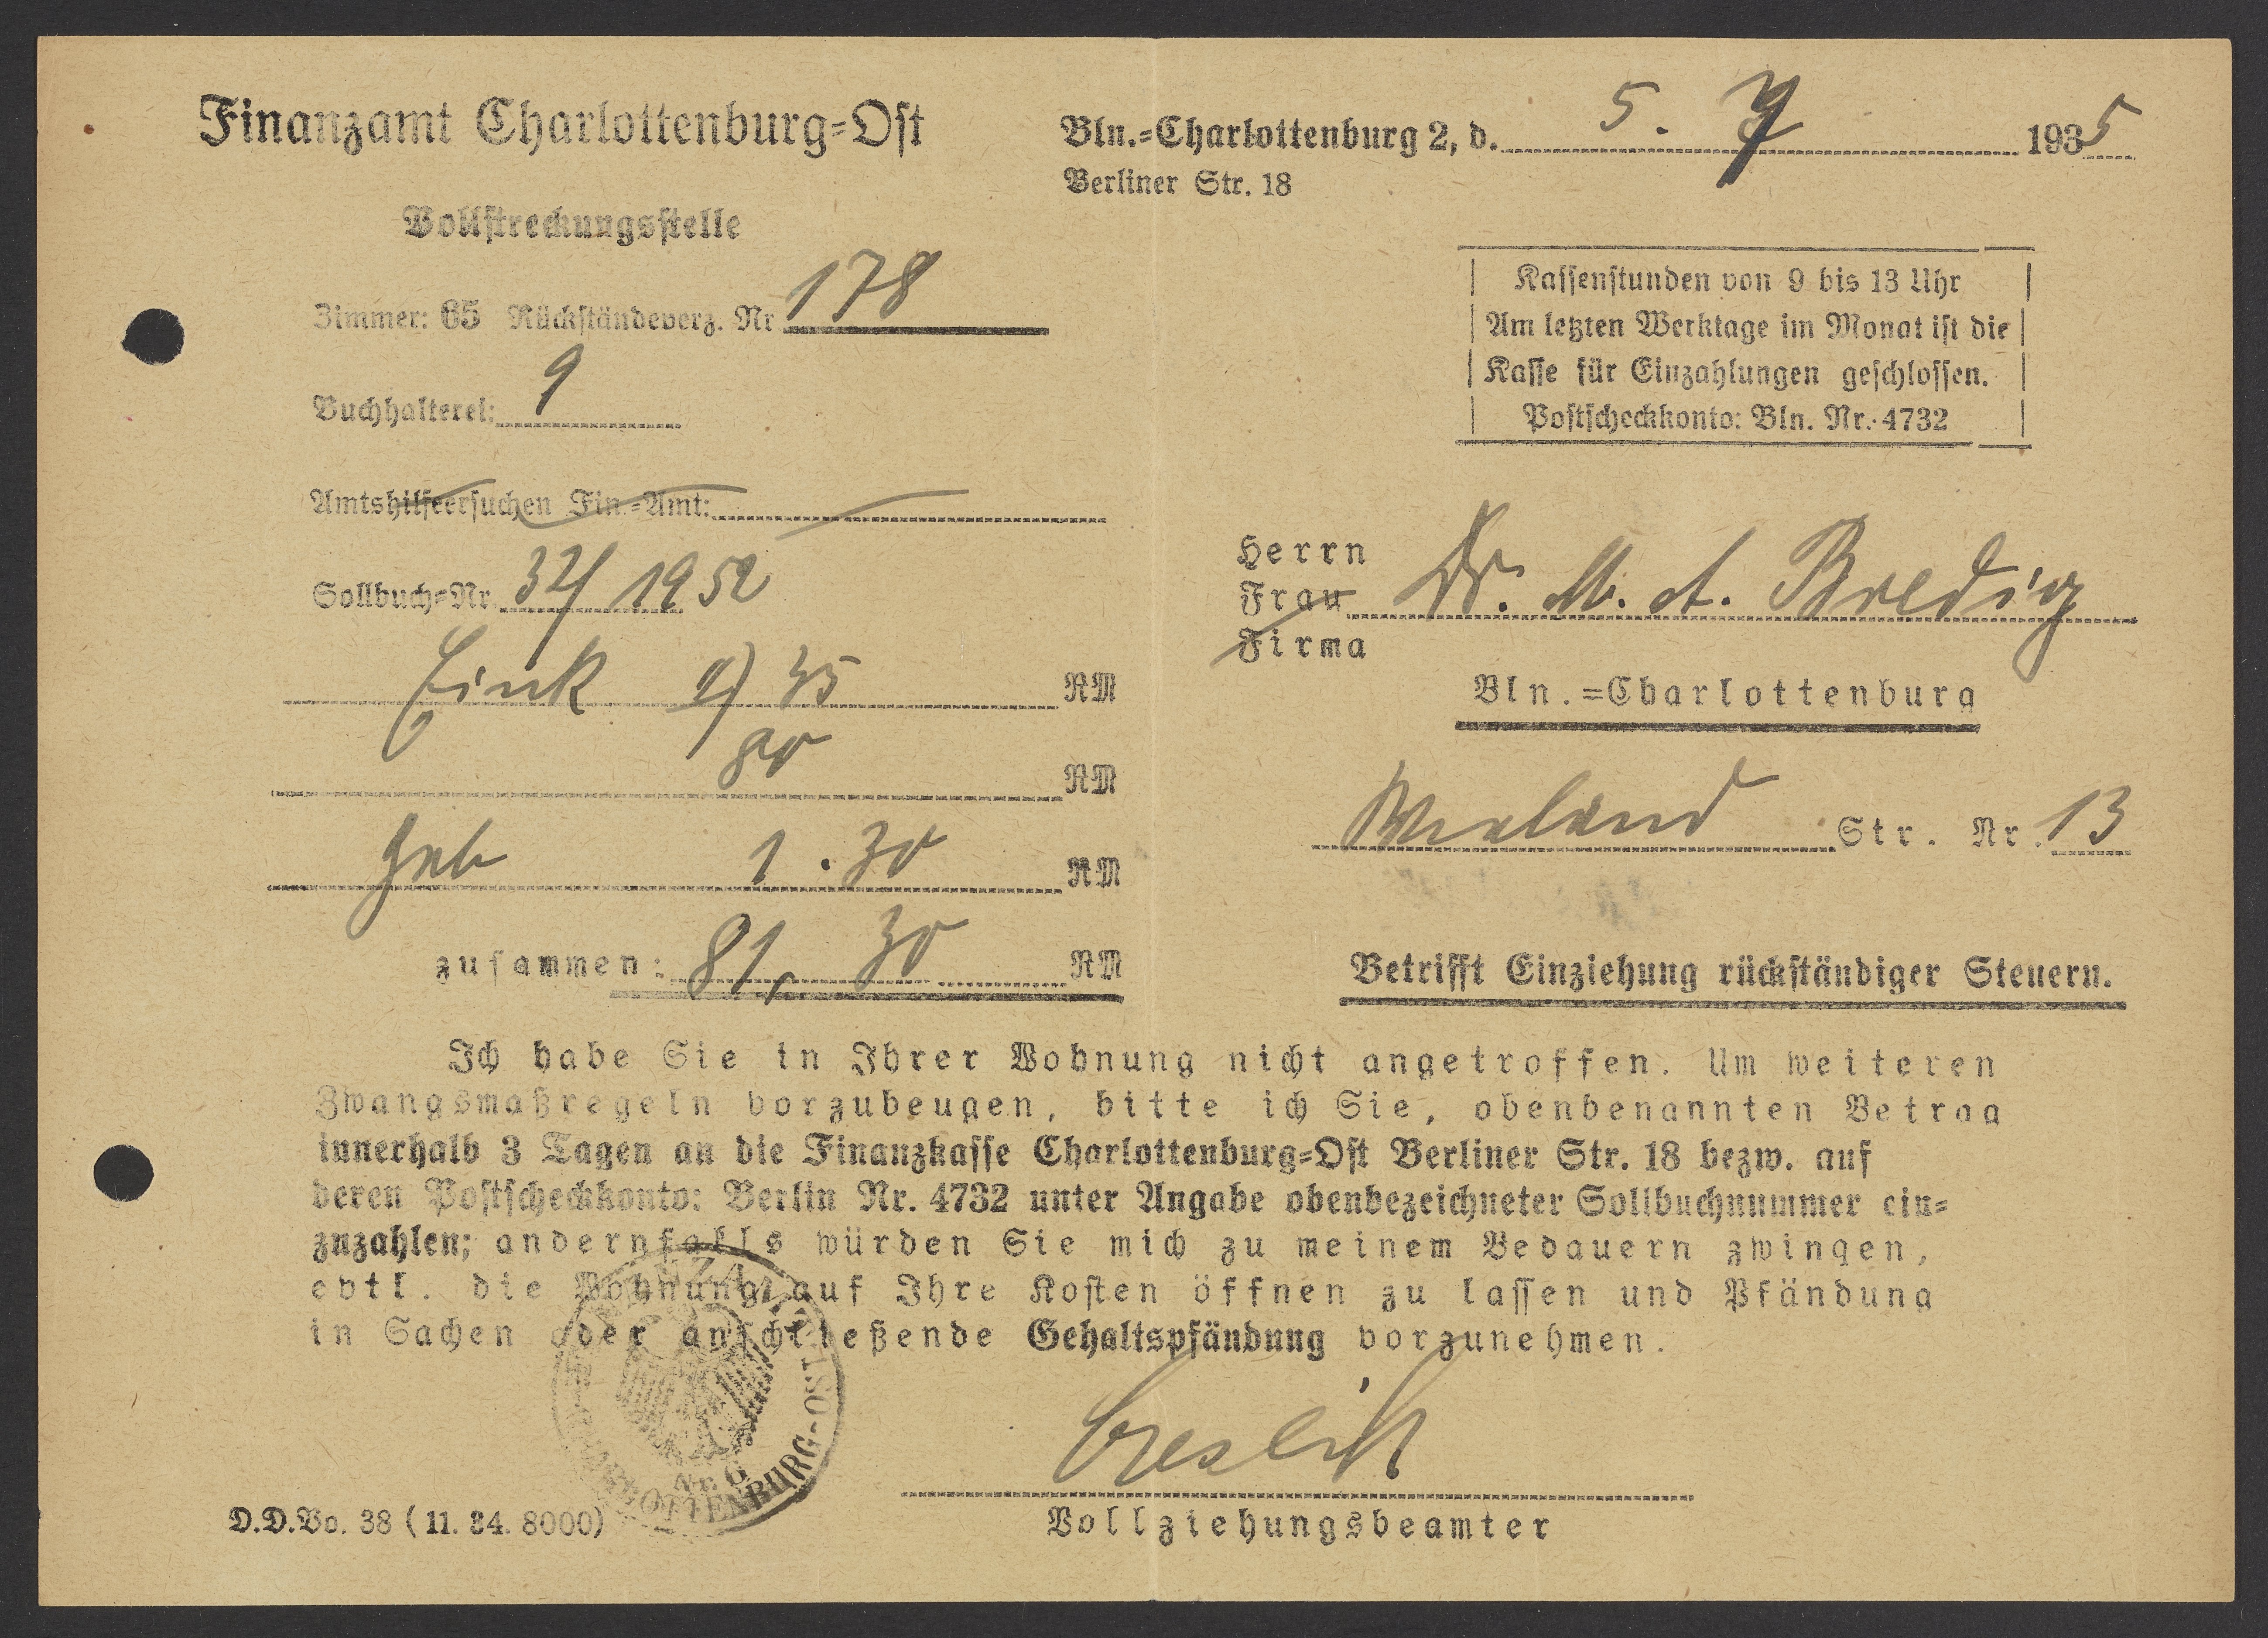 Finanzamt Charlottenburg=Ost
Vollstreckungsstelle
Zimmer: 65 Rückständeverz. Nr 178
Buchhalterei: 9
Amtshilfeersuchen Fin.=Amt:
Sollbuch=Nr. 32/1952
Eink 35 RM
80 RM
Geb 1.30 RM
zusammen: 81, 30 RM
Bln.=Charlottenburg 2, d. 5. 7 1935
Berliner Str. 18
Kassenstunden von 9 bis 13 Uhr
Am letzten Werktage im Monat ist die
Kasse für Einzahlungen geschlossen.
Postscheckkonto: Bln. Nr. 4732
Herrn
Frau Dr. M. A. Bredig
Firma
Bln.=Charlottenburg
Wieland Str. Nr. 13
Betrifft Einziehung rückständiger Steuern.
Ich habe Sie in Ihrer Wohnung nicht angetroffen. Um weiteren
Zwangsmaßregeln vorzubeugen, bitte ich Sie, obenbenannten Betrag
innerhalb 3 Tagen an die Finanzkasse Charlottenburg=Ost Berliner Str. 18 bezw. auf
deren Postscheckkonto: Berlin Nr. 4732 unter Angabe obenbezeichneter Sollbuchnummer ein=
zuzahlen; andernfalls würden Sie mich zu meinem Bedauern zwingen,
evtl. die Wohnung auf Ihre Kosten öffnen zu lassen und Pfändung
in Sachen oder anschließende Gehaltspfändung vorzunehmen.
CHARLOTTENBURG-OST
Nr. 6
Vollziehungsbeamter
D.D.Vo. 38 (11. 34. 8000)